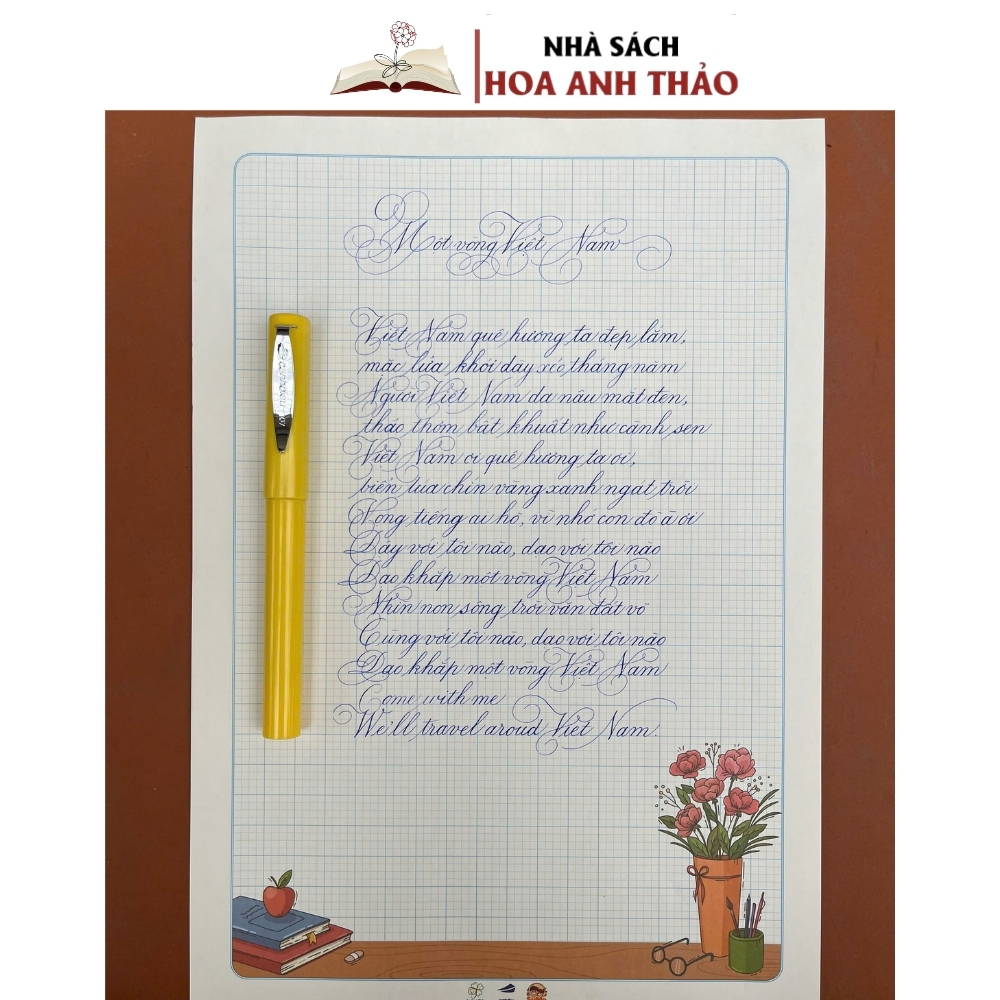 NHÀ SÁCH
HOA ANH THẢO
Một vòng Việt Nam
Việt Nam quê hương ta đẹp lắm,
mặc lửa khói dãy xéo tháng năm
Người Việt Nam da nâu mắt đen,
thảo thơm bất khuất như cánh sen
Việt Nam ơi quê hương ta ơi,
biển lúa chín vàng xanh ngát trời
Vọng tiếng ai hò, vì nhớ con đò à ơi
Đây với tôi nào, dạo với tôi nào
Dạo khắp một vòng Việt Nam
Nhìn non sông trời vân đất võ
Cùng với tôi nào, dạo với tôi nào
Dạo khắp một vòng Việt Nam
Come with me
We'll travel aroud Việt Nam.